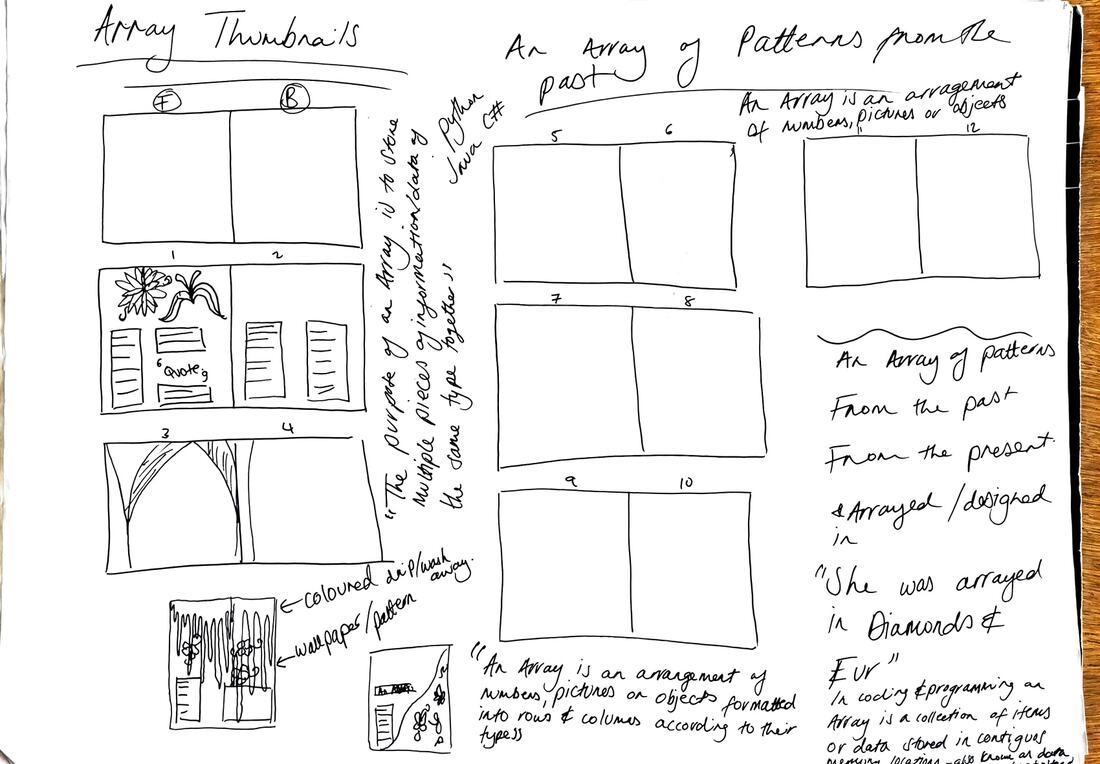 Array Thumbnails
F B
1 2
"Quote"
3 4
← coloured drip/wash away.
← wallpaper/pattern
"The purpose of an Array is to store
multiple pieces of information/data of
the same type together"
Python
Java C#
An Array of Patterns from the
past
An Array is an arragement
of numbers, pictures or objects
5 6
12
7 8
9 10
"An Array is an arrangement of
numbers, pictures or objects formatted
into rows & columns according to their
types"
An Array of patterns
From the past
From the present.
& Arrayed / designed
in
"She was arrayed
in Diamonds &
Fur"
In coding & programming an
Array is a collection of items
or data stored in contiguos
memory locations - also known as data